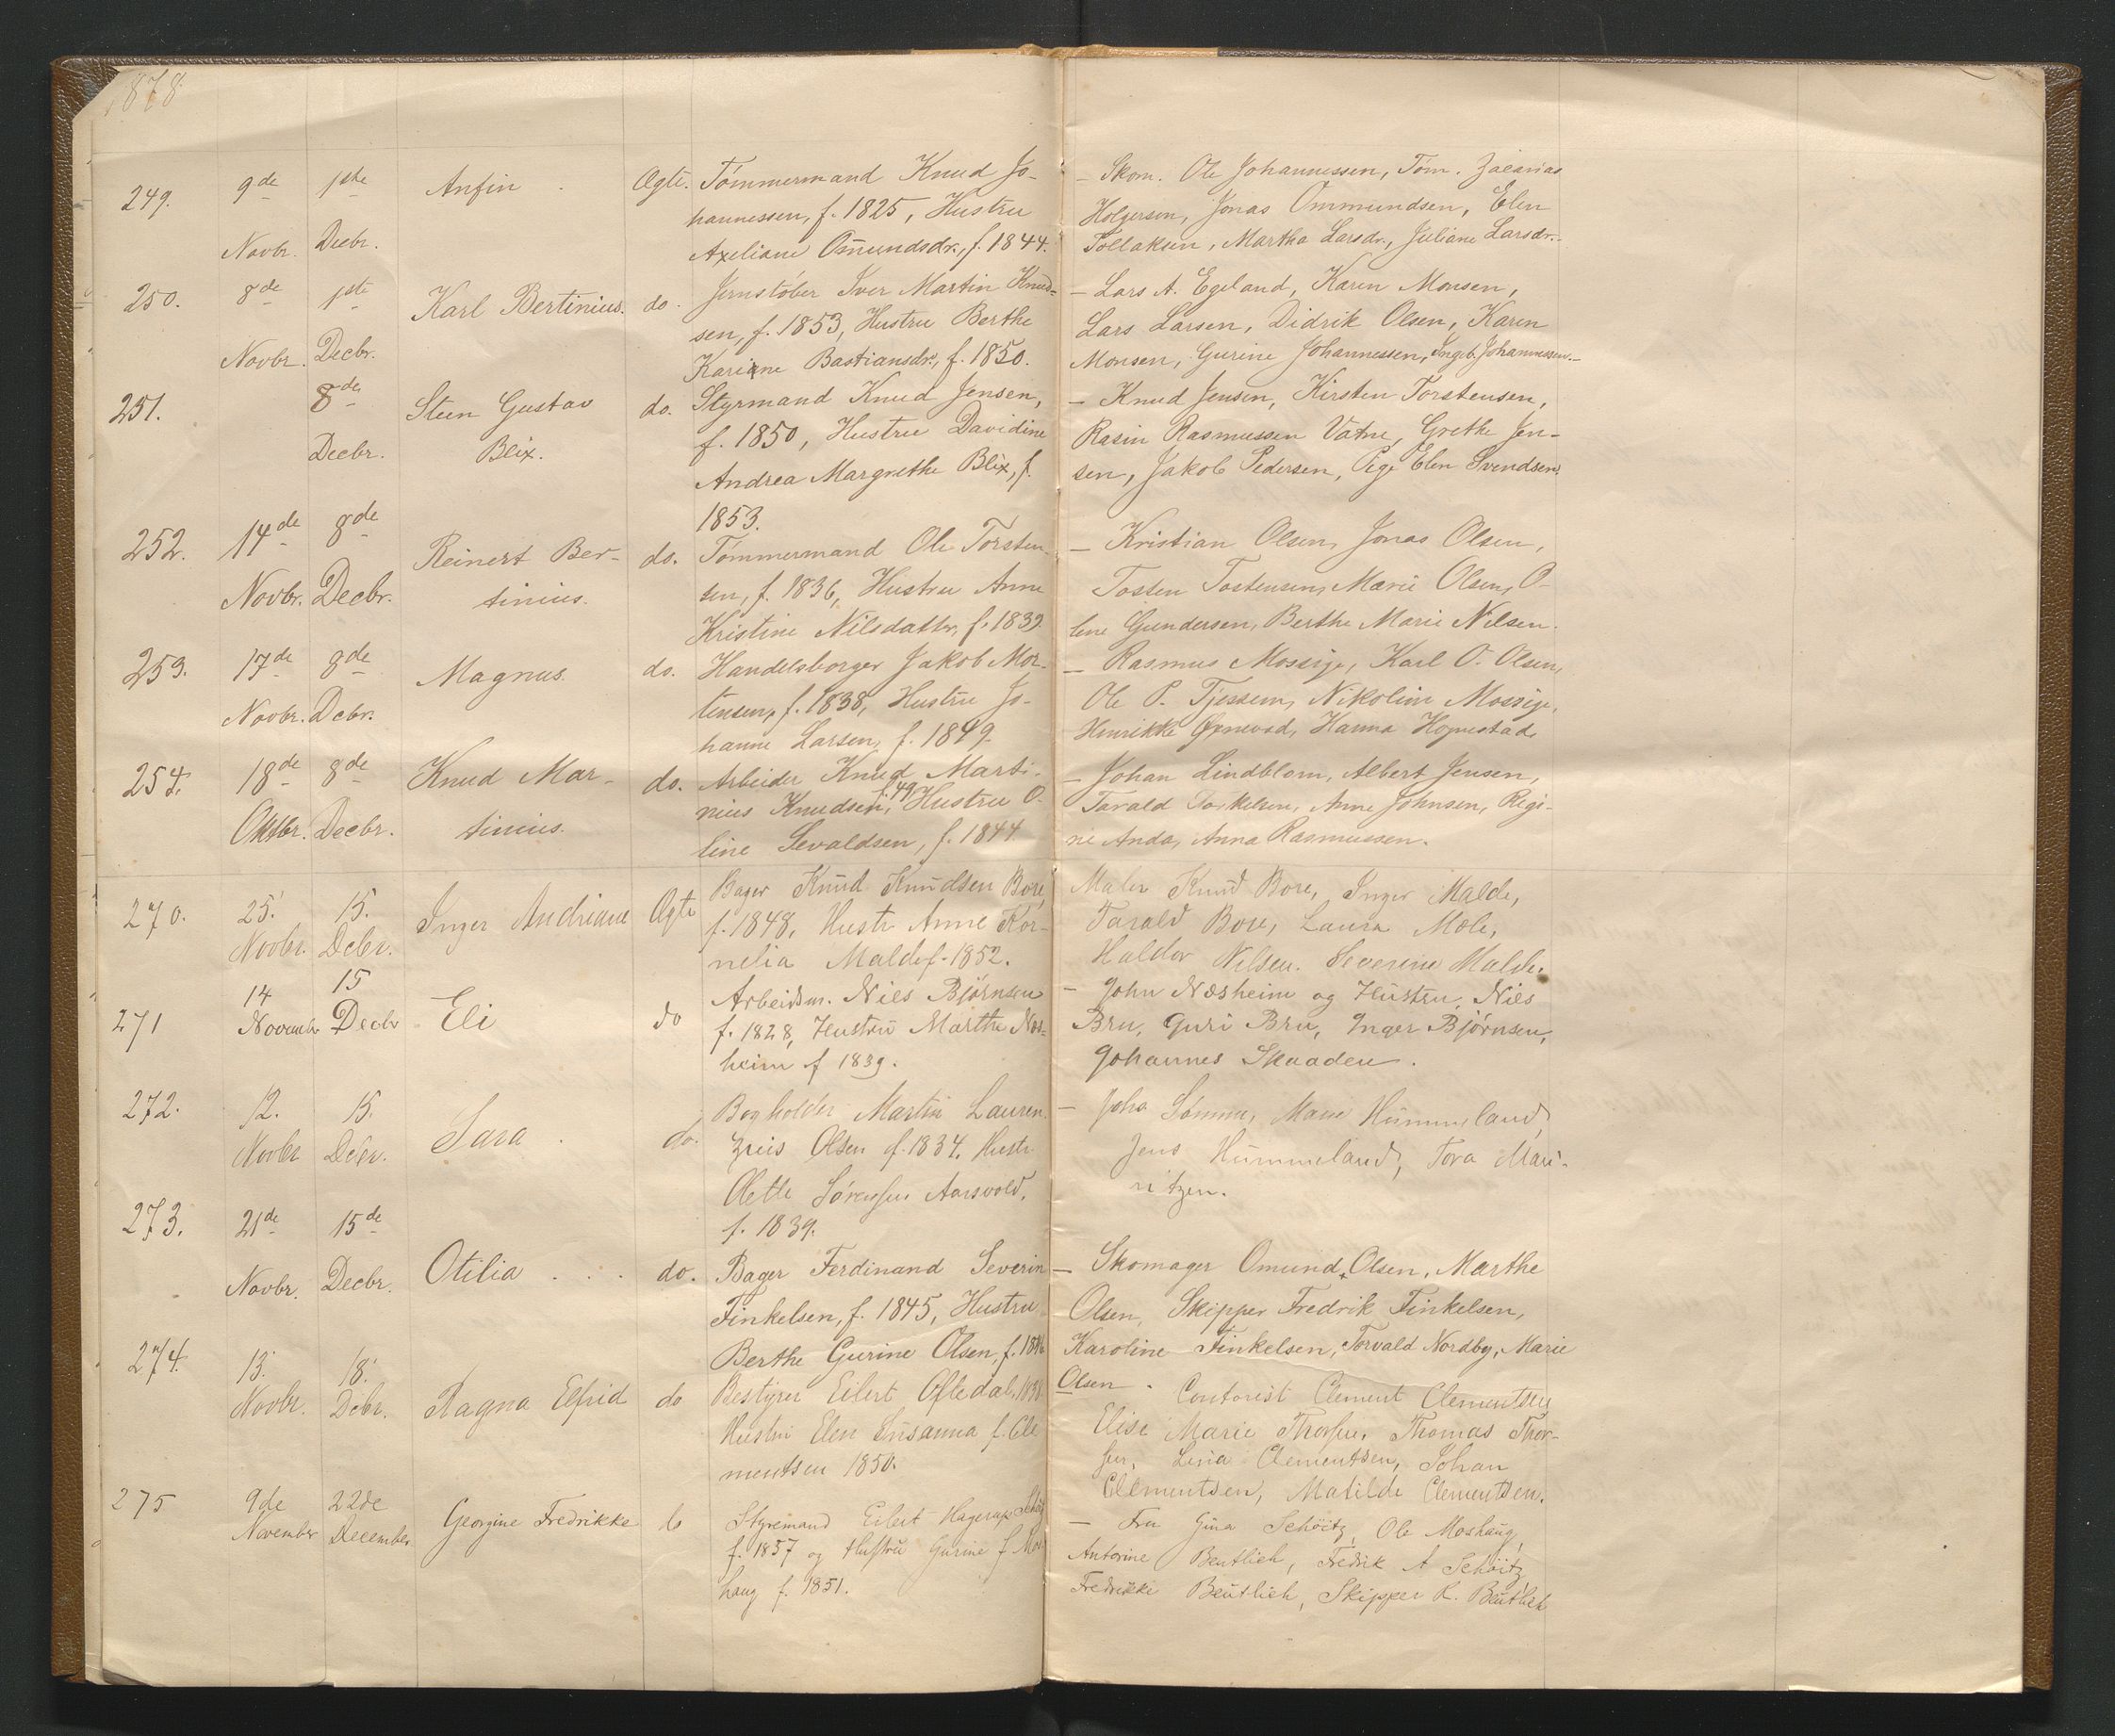 1878
249. 9de 1ste Anfin Ægte. Tømmermand Knud Jo- — Skom. Ole Johannessen, Tøm. Zacarias
hannessen, f. 1825, Hustru Holgersen, Jonas Ommundsen, Elen
Novbr. Decbr. Axeliane Omundsdr., f. 1844. Tollaksen, Martha Larsdr., Juliane Larsdr.-
250. 8de 1ste Karl Bertinius. do. Jernstøber Iver Martin Knud- — Lars A. Egeland, Karen Monsen,
sen, f. 1853, Hustru Berthe Lars Larsen, Didrik Olsen, Karen
Novbr. Decbr. Kariane Bastiansdr., f. 1850. Monsen, Gurine Johannessen, Ingeb. Johannessen.-
251. 8de Steen Gustav do. Styrmand Knud Jensen, — Knud Jensen, Kirsten Torstensen,
Decbr. Blix. f. 1850, Hustru Davidine Rasin Rasmussen Vatne, Grethe Jen-
Andrea Margrethe Blix, f. sen, Jakob Pedersen, Pige Elen Svendsen.
1853.
252. 14de 8de Reinert Ber- do. Tømmermand Ole Torsten- — Kristian Olsen, Jonas Olsen,
Novbr. Decbr. tinius. sen, f. 1836, Hustru Anne Tosten Tostensen, Marie Olsen, O-
Kristine Nilsdatter, f. 1839. line Gundersen, Berthe Marie Nilsen.
253. 17de 8de Magnus. do. Handelsborger Jakob Mor- — Rasmus Mossige, Karl O. Olsen,
Novbr. Debr. tensen, f. 1838, Hustru Jo- Ole P. Tjessem, Nikoline Mossige,
hanne Larsen, f. 1849. Henrikke Ognevad, Hanna Hognestad
254. 18de 8de Knud Mar- do. Arbeider Knud Marti- — Johan Lindblom, Albert Jensen,
Oktbr. Decbr. tinius. nius Knudsen, f. 49, Hustru O- Tarald Torkelsen, Anne Johnsen, Regi-
line Sevaldsen, f. 1844 ne Anda, Anna Rasmussen.
270. 25. 15. Inger Andriane Ægte Bager Knud Knudsen Bore, Maler Knud Bore, Inger Malde,
Novbr. Debr. f. 1848, Hustr Anne Kor- Tarald Bore, Laura Mole,
nelia Malde f. 1852. Haldor Nilsen. Severine Malde.
271 14 15 Eli do Arbeidsm. Niels Bjørnsen — John Næsheim og Hustru, Niels
November Decbr f. 1828, Hustru Marthe Næs- Bru, Guri Bru, Inger Bjørnsen,
heim f 1839. Johannes Skaaden.
272. 12. 15. Sara do. Bogholder Martin Lauren- — Sømme, Marie Hummeland,
Novbr Debr. zius Olsen f. 1834. Hustr Jens Hummeland, Tora Mau-
Olette Sørensen Aarsvold, ritzen.
f. 1839.
273. 21de 15de Otilia . . . do. Bager Ferdinand Severin — Skomager Omund Olsen, Marthe
Novbr. Decbr. Finkelsen, f. 1845, Hustru Olsen, Skipper Fredrik Finkelsen,
Berthe Gurine Olsen, f. 1846 Karoline Finkelsen, Torvald Nordby, Marie
Olsen.
274. 13. 18. Ragna Elfrid do Bestyrer Eilert Oftedal, Contorist Clement Clementsen
Novbr. Debr. Hustru Elen Susanna f. Cle- Elise Marie Thorsen, Thomas Thor-
mentsen 1850. sen, Lina Clementsen, Johan
Clementsen, Matilde Clementsen.
275 9de 22de Georgine Fredrikke Styremand Eilert Hagerup — Fru Gina Schöitz, Ole Moshaug,
November December f. 1857 og Hustru Gurine f Mos- Antonine Beutlich, Fredrik A Schöitz
haug f. 1851. Fredrikke Beutlich, Skipper K. Beutlich